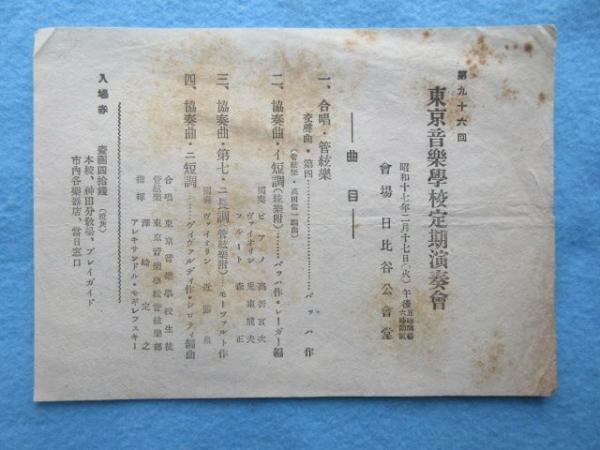 第九十六回
東京音樂學校定期演奏會
昭和十七年二月十七日(火)午後五時開場六時開演
會場 日比谷公會堂
――曲目――
一、合唱・管絃樂
交聲曲・第四……バッハ作
(管絃樂・高田信一編曲)
二、協奏曲・イ短調(絃樂附)……バッハ作・レーガー編
獨奏 ピアノ 高折宮次
ヴァイオリン 兎束龍夫
フルート 森正
三、協奏曲・第七・ニ長調(管絃樂附)…モーツァルト作
獨奏 ヴァイオリン 近藤泉
四、協奏曲・ニ短調……ヴィヴァルディ作・シロティ編曲
合唱 東京音樂學校生徒
管絃樂 東京音樂學校管絃樂部
指揮 澤崎定之
アレキサンドル・モギレフスキー
入場券 壹圓四拾錢(税共)
本校、神田分敎場、プレイガイド
市內各樂器店、當日窓口